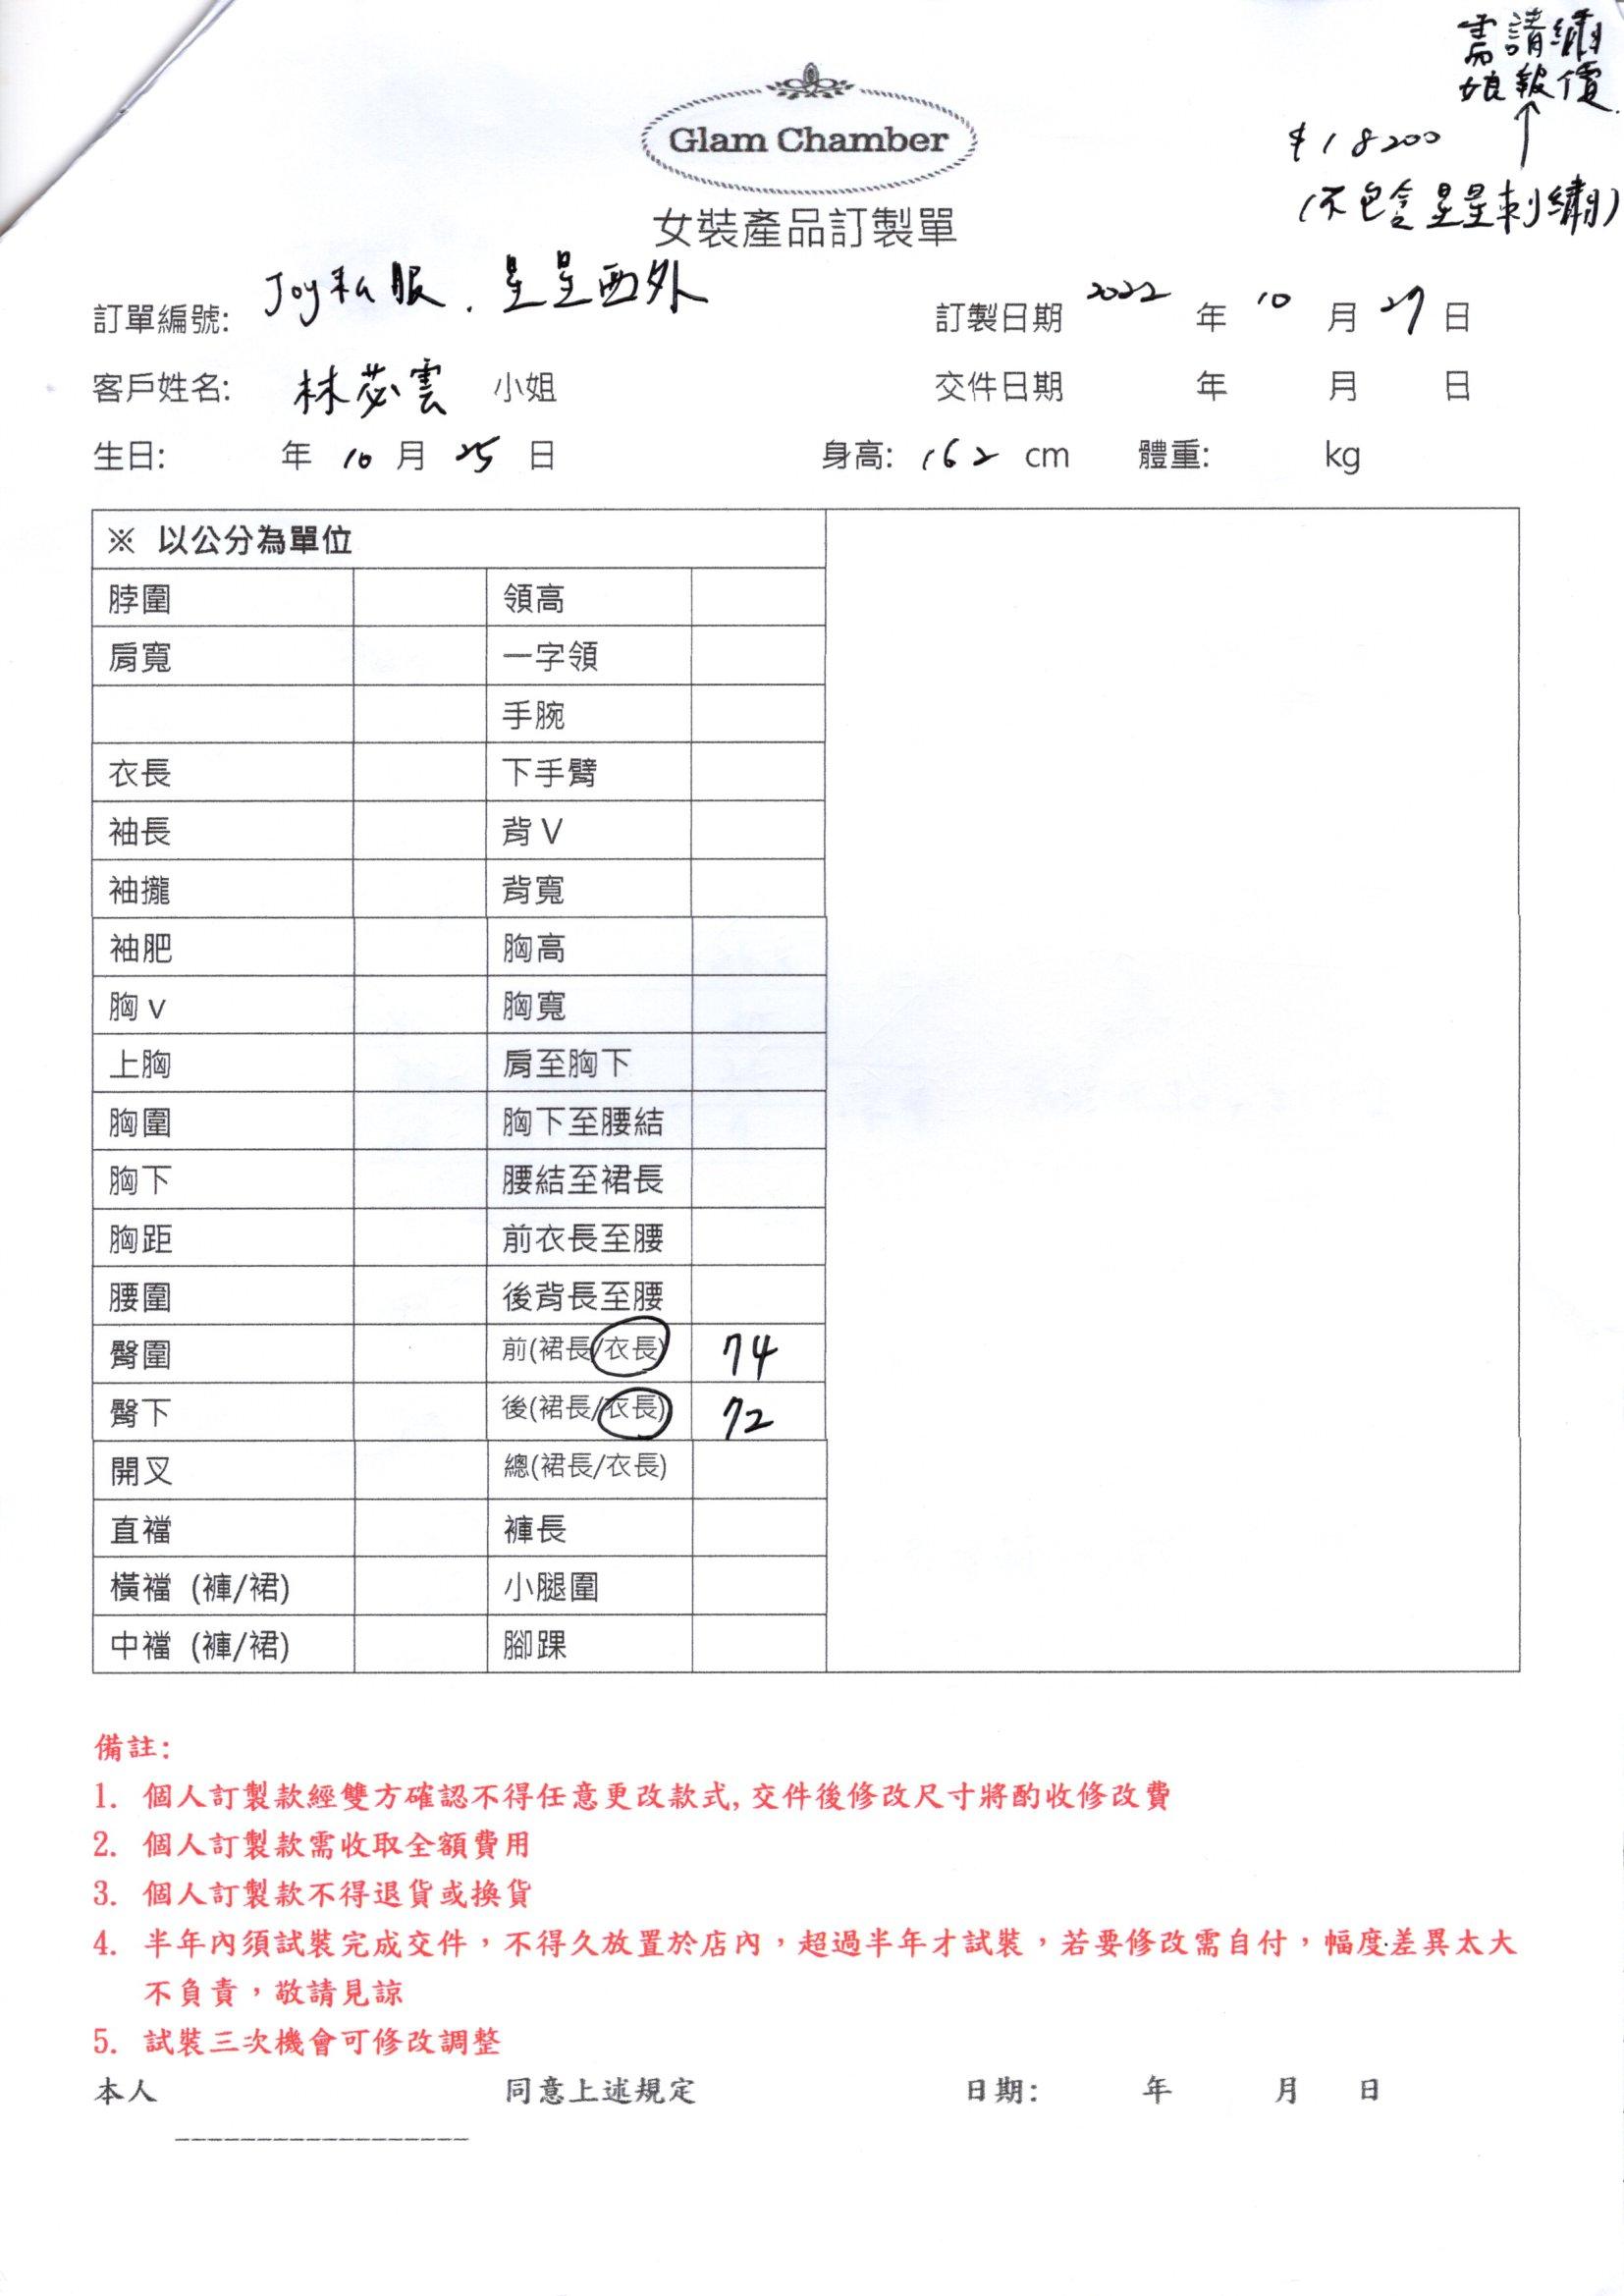 需請繡
娘報價
$18200
(不包含星星刺繡)
Glam Chamber
女裝產品訂製單
訂單編號: Joy私服.星星西外 訂製日期 2022 年 10 月 27 日
客戶姓名: 林苾雲 小姐 交件日期 年 月 日
生日: 年 10 月 25 日 身高: 162 cm 體重: kg
※ 以公分為單位
脖圍 領高
肩寬 一字領
手腕
衣長 下手臂
袖長 背 V
袖攏 背寬
袖肥 胸高
胸 v 胸寬
上胸 肩至胸下
胸圍 胸下至腰結
胸下 腰結至裙長
胸距 前衣長至腰
腰圍 後背長至腰
臀圍 前(裙長/衣長) 74
臀下 後(裙長/衣長) 72
開叉 總(裙長/衣長)
直襠 褲長
橫襠 (褲/裙) 小腿圍
中襠 (褲/裙) 腳踝
備註:
1. 個人訂製款經雙方確認不得任意更改款式,交件後修改尺寸將酌收修改費
2. 個人訂製款需收取全額費用
3. 個人訂製款不得退貨或換貨
4. 半年內須試裝完成交件，不得久放置於店內，超過半年才試裝，若要修改需自付，幅度差異太大
不負責，敬請見諒
5. 試裝三次機會可修改調整
本人 同意上述規定 日期: 年 月 日